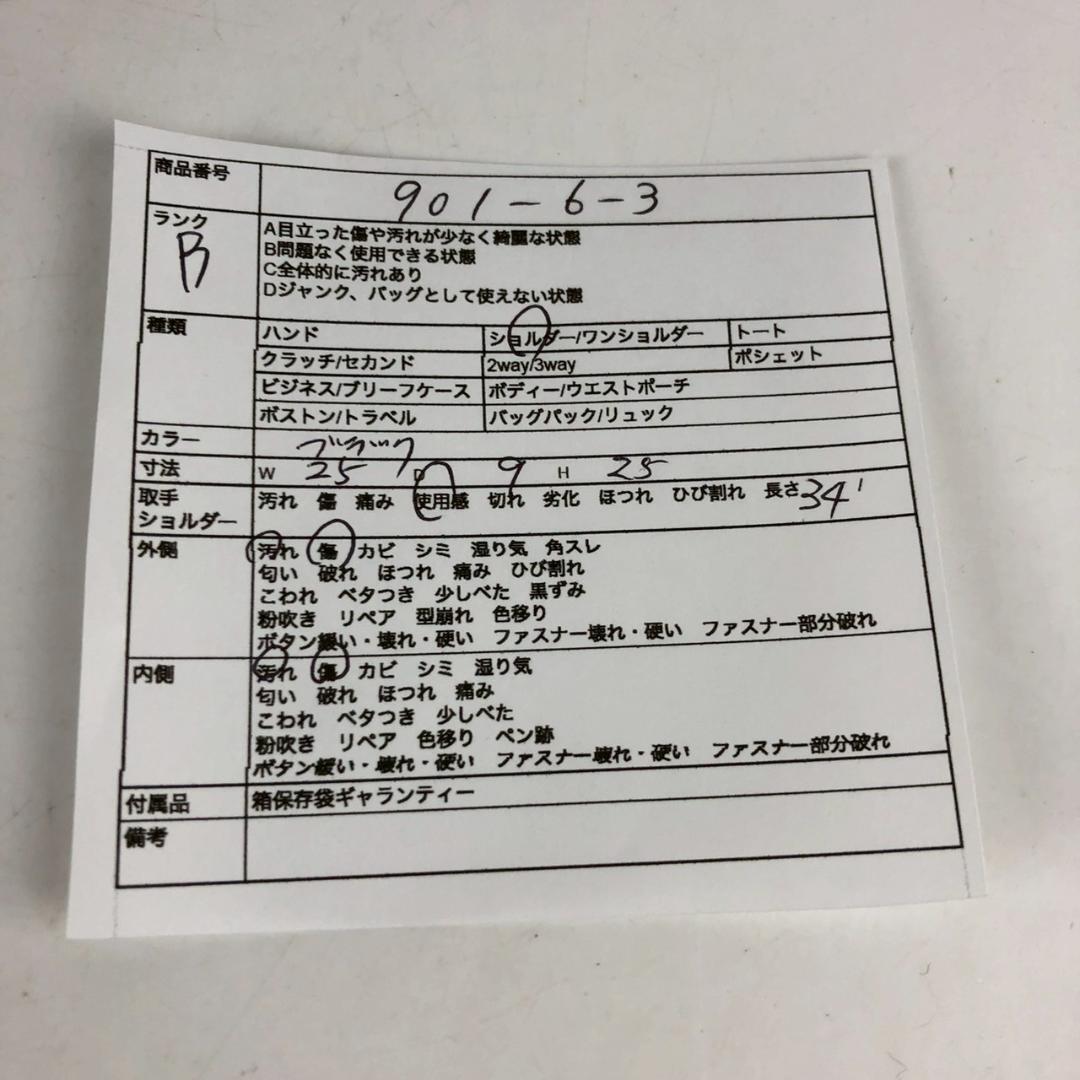 商品番号 901-6-3
ランク B
A目立った傷や汚れが少なく綺麗な状態
B問題なく使用できる状態
C全体的に汚れあり
Dジャンク、バッグとして使えない状態
種類 ハンド ショルダー/ワンショルダー トート
クラッチ/セカンド 2way/3way ポシェット
ビジネス/ブリーフケース ボディー/ウエストポーチ
ボストン/トラベル バッグパック/リュック
カラー ブラック
寸法 W 25 D 9 H 25
取手 汚れ 傷 痛み 使用感 切れ 劣化 ほつれ ひび割れ 長さ 34
ショルダー
外側 汚れ 傷 カビ シミ 湿り気 角スレ
匂い 破れ ほつれ 痛み ひび割れ
こわれ ベタつき 少しべた 黒ずみ
粉吹き リペア 型崩れ 色移り
ボタン緩い・壊れ・硬い ファスナー壊れ・硬い ファスナー部分破れ
内側 汚れ 傷 カビ シミ 湿り気
匂い 破れ ほつれ 痛み
こわれ ベタつき 少しべた
粉吹き リペア 色移り ペン跡
ボタン緩い・壊れ・硬い ファスナー壊れ・硬い ファスナー部分破れ
付属品 箱保存袋ギャランティー
備考